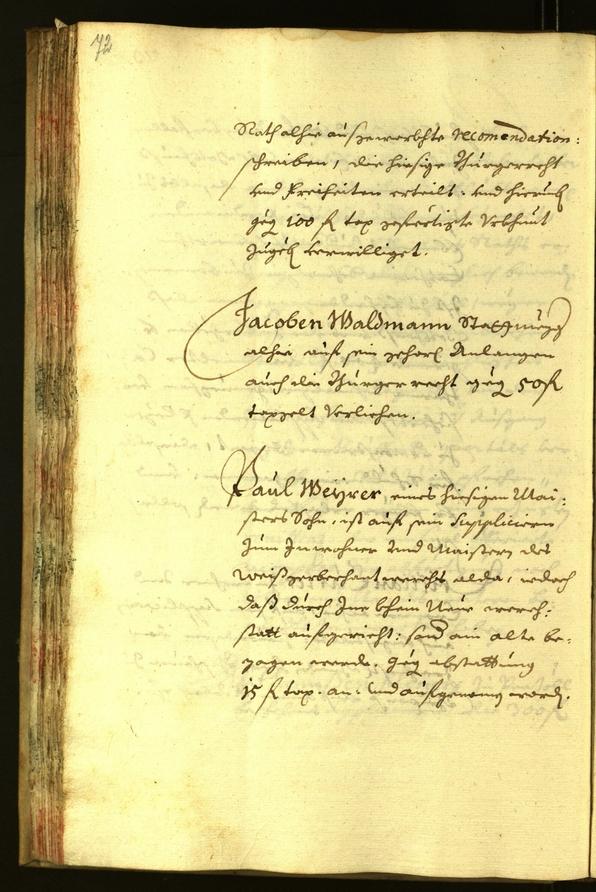 72
Rath alhie ausgewerchte recomendation:
schreiben, die hiesige Bürgerrecht
und Freiheiten erteilt: und hierauf
geg 100 fl tax gefertigte
Zugeh bewilliget.
Jacoben Waldmann
alhie auf sein gehors Anlangen
auch die Bürgerrecht geg 50 fl
taxgelt Verlichen.
Paul Weÿrer, eines hiesigen Mai:
sters Sohn, ist auf sein Suppliciern
zum Inwohner und Maistern des
Weißgerberhantwerchs alda, iedoch
daß durch Ine khein Neue werch:
statt aufgericht: sond ain alte be:
zogen werde. geg abstattung
15 fl tax. an: und aufgenomen worden.